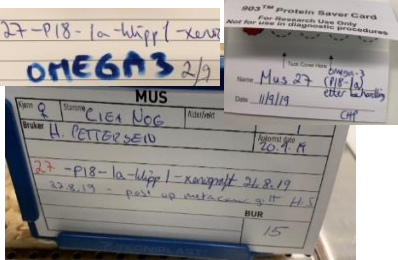 27-P18-1a-klipp1-xenogr
OMEGA3 2/9
903™ Protein Saver Card
For Research Use Only
Not for use in diagnostic procedures.
Tuck Cover Here
Name Mus 27 omega-3
(P18-1a)
etter behandling
Date 11/9/19
MUS
Kjønn ♀ Stamme CIEA NOG Alder/vekt
Bruker H. PETTERSEN Ankomst dato
20.9.19
27-P18-1a-klipp1-xenograft 21.8.19
22.8.19 - post op metacam gitt H.S
BUR
15